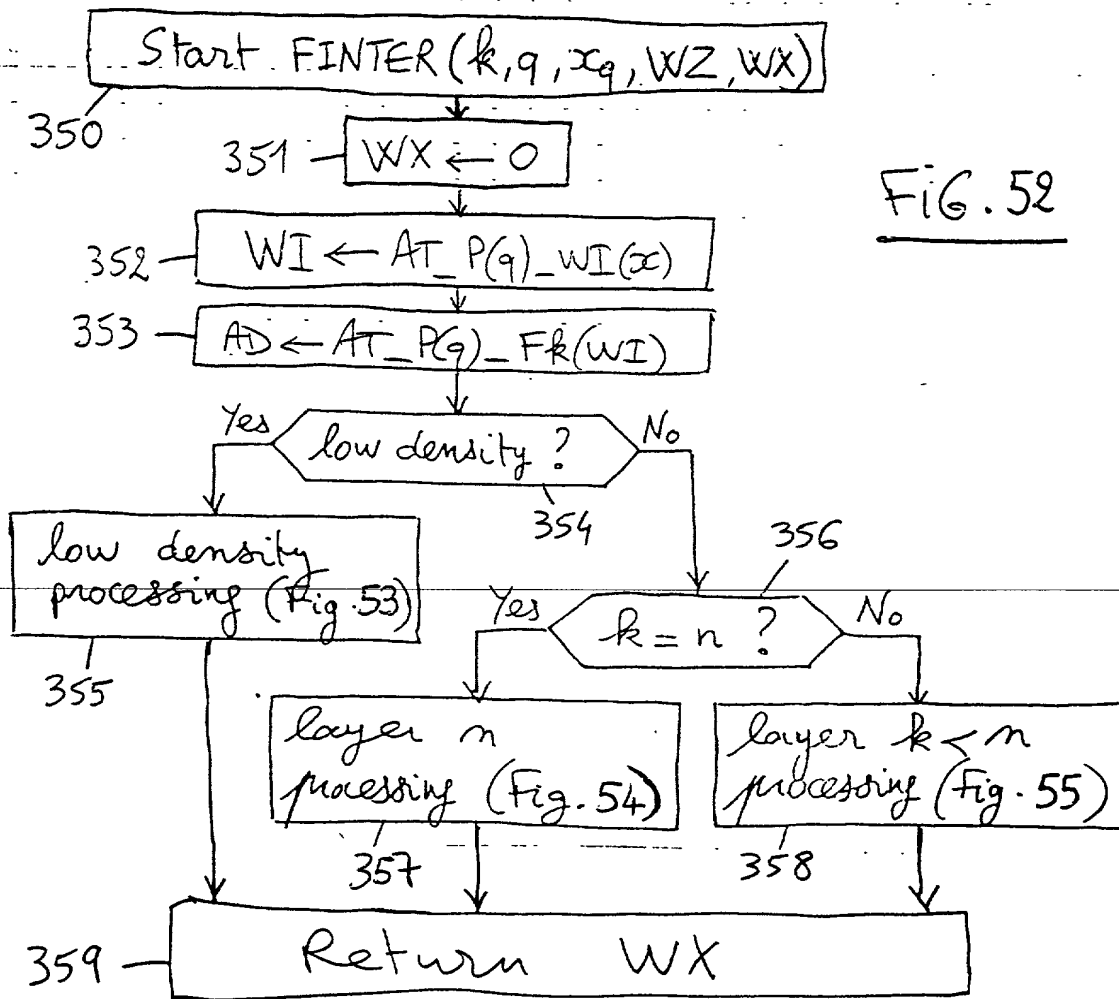 Start FINTER (k, q, xq, WZ, WX)
350
351
WX ← 0
FiG. 52
352
WI ← AT_P(q)_WI(x)
353
AD ← AT_P(q)_Fk(WI)
Yes
low density ?
No
354
356
low density
processing (Fig. 53)
355
Yes
k = n ?
No
layer n
processing (Fig. 54)
357
layer k < n
processing (Fig. 55)
358
359
Return WX